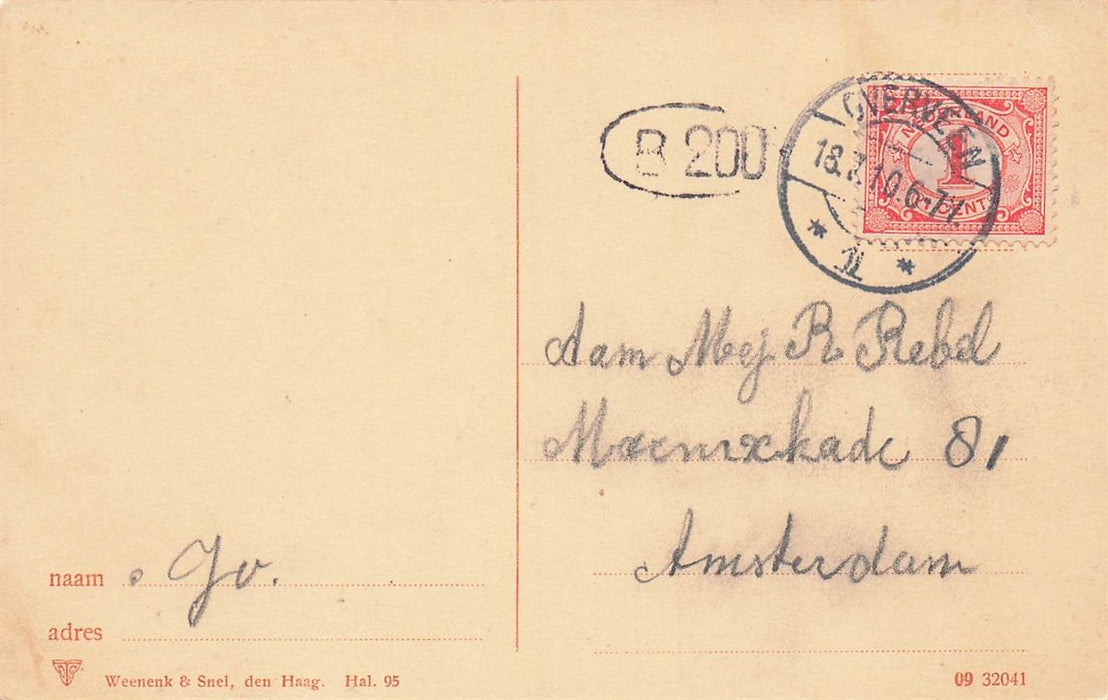 B 200
OVERVEEN
18.7.10.6-7V.
1
NEDERLAND
1
CENT
Aan Mej R Rebel
Marnixkade 81
Amsterdam
naam Jo.
adres
Weenenk & Snel, den Haag. Hal. 95
09 32041